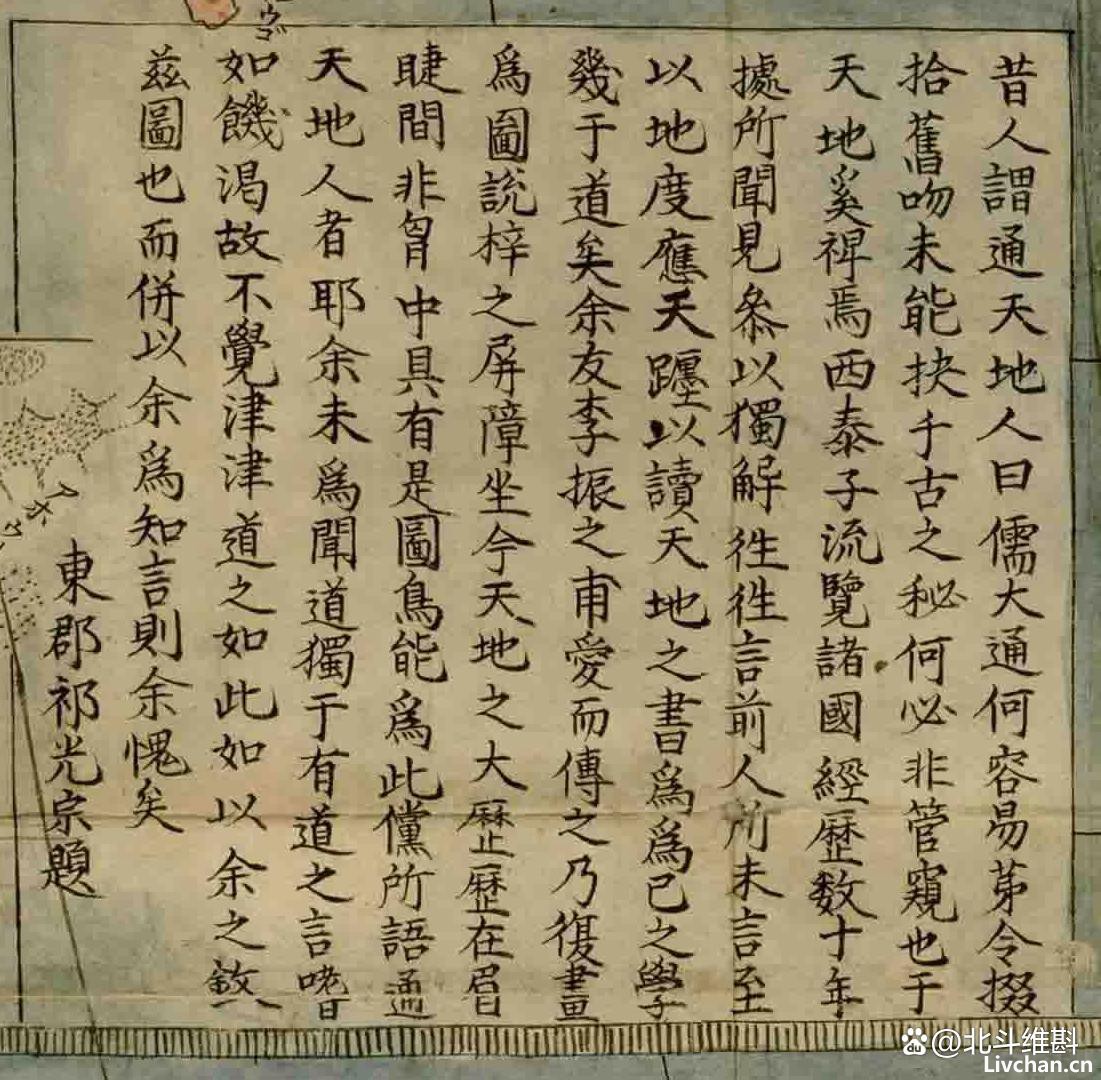 昔人謂通天地人曰儒大通何容易苐令掇
拾舊吻未能抉千古之秘何必非管窺也于
天地奚裨焉西泰子流覽諸國經歷数十年
據所聞見叅以獨解徃徃言前人所未言至
以地度應天躔以讀天地之書為為已之學
幾于道矣余友李振之甫愛而傳之乃復畫
為圖說梓之屏障坐令天地之大歷歷在眉
睫間非胷中具有是圖烏能為此儻所語通
天地人者耶余未為聞道獨于有道之言嗜
如饑渴故不覺津津道之如此如以余之
茲圖也而併以余為知言則余愧矣
東郡祁光宗題
@北斗维斟
Livchan.cn